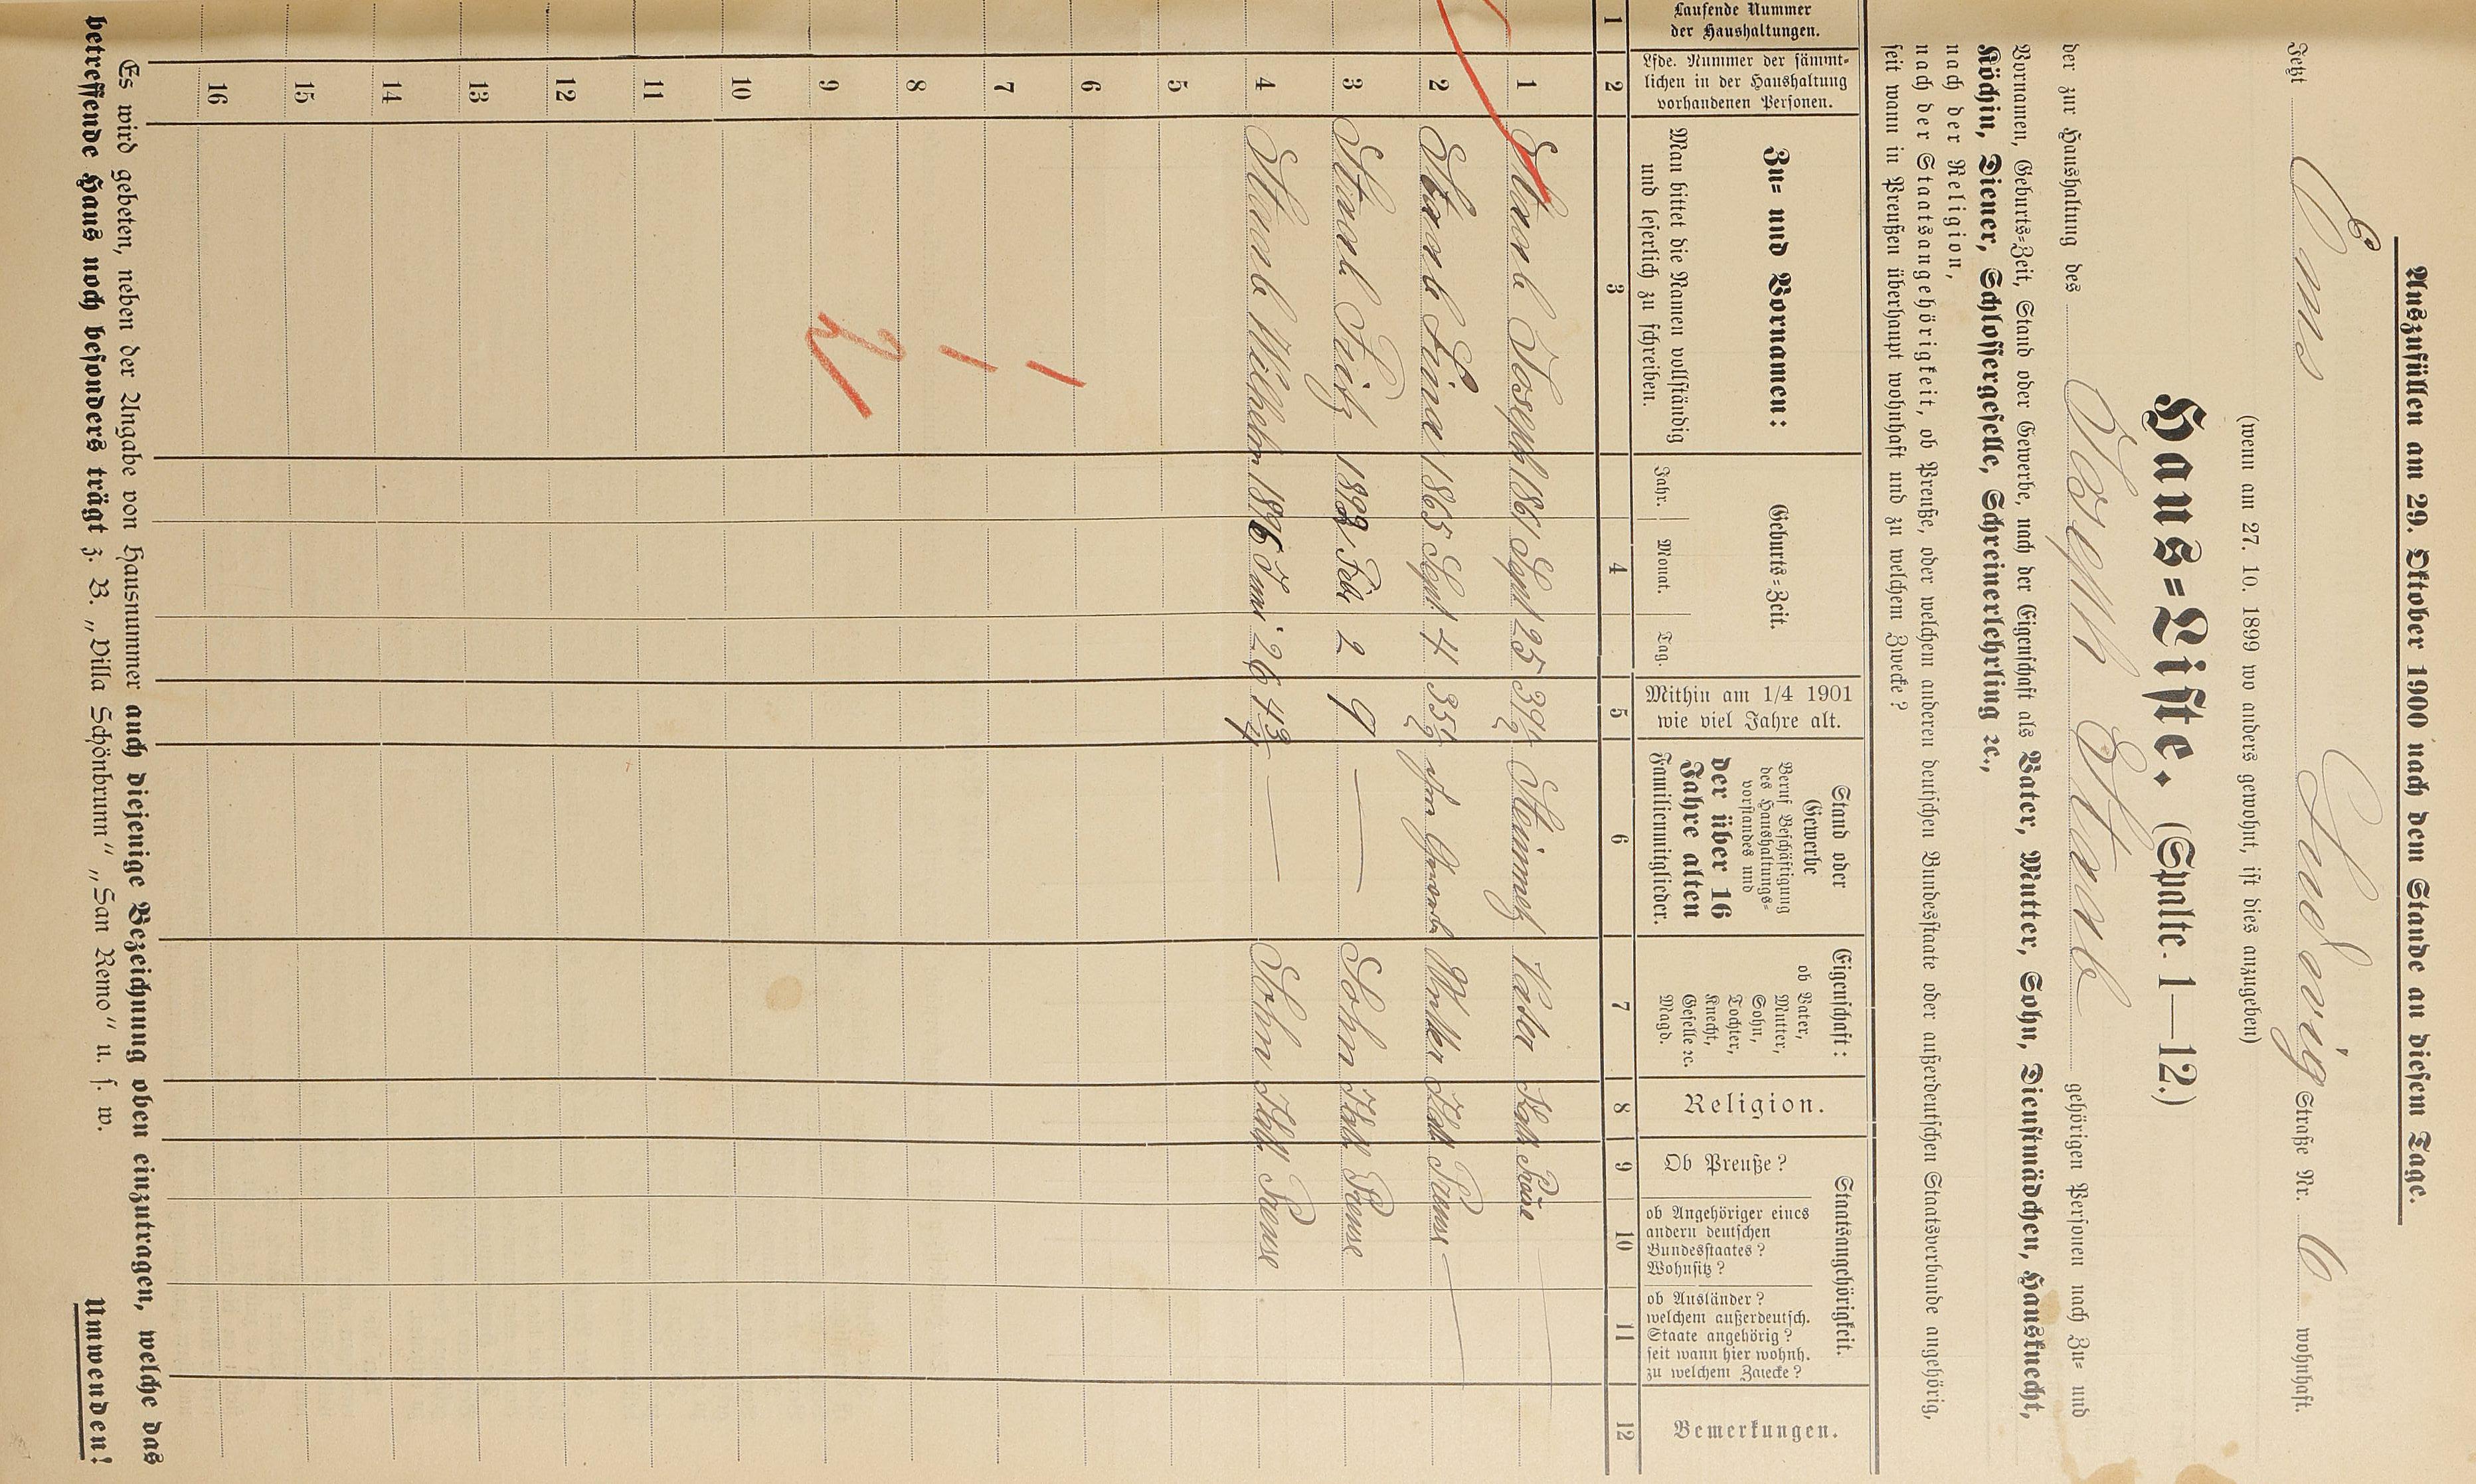 Auszufüllen am 29. Oktober 1900 nach dem Stande an diesem Tage.
Jetzt Ems Ludwig Straße Nr. 6 wohnhaft.
(wenn am 27. 10. 1899 wo anders gewohnt, ist dies anzugeben)
Haus-Liste. (Spalte. 1—12.)
der zur Haushaltung des Joseph Staab gehörigen Personen nach Zu- und
Vornamen, Geburts-Zeit, Stand oder Gewerbe, nach der Eigenschaft als Vater, Mutter, Sohn, Dienstmädchen, Hausknecht,
Köchin, Diener, Schlossergeselle, Schreinerlehrling ꝛc.,
nach der Religion,
nach der Staatsangehörigkeit, ob Preuße, oder welchem anderen deutschen Bundesstaate oder außerdeutschen Staatsverbande angehörig,
seit wann in Preußen überhaupt wohnhaft und zu welchem Zwecke?
Laufende Nummer
der Haushaltungen.
Lfde. Nummer der sämmt-
lichen in der Haushaltung
vorhandenen Personen.
Zu- und Vornamen:
Man bittet die Namen vollständig
und leserlich zu schreiben.
Geburts-Zeit.
Jahr. Monat. Tag.
Mithin am 1/4 1901
wie viel Jahre alt.
Stand oder
Gewerbe
Beruf Beschäftigung
des Haushaltungs-
vorstandes und
der über 16
Jahre alten
Familienmitglieder.
Eigenschaft:
ob Vater,
Mutter,
Sohn,
Tochter,
Knecht,
Geselle ꝛc.
Magd.
Religion.
Staatsangehörigkeit.
Ob Preuße?
ob Angehöriger eines
andern deutschen
Bundesstaates?
Wohnsitz?
ob Ausländer?
welchem außerdeutsch.
Staate angehörig?
seit wann hier wohnh.
zu welchem Zwecke?
Bemerkungen.
1 2 3 4 5 6 7 8 9 10 11 12
1 Staab Joseph 1861 Sept 25 39½ Steinmetz Vater Kath Preuse
2 Staab Lina 1865 Sept 4 35½ Mutter Kath Preuse
3 Staab Fritz 1892 Feb. 2 9 — Sohn Kath Preuse
4 Staab Wilhelm 1896 Juni 26 4¾ — Sohn Kath Preuse
5
6
7
8
9
10
11
12
13
14
15
16
Es wird gebeten, neben der Angabe von Hausnummer auch diejenige Bezeichnung oben einzutragen, welche das
betreffende Haus noch besonders trägt z. B. „Villa Schönbrunn“ „San Remo“ u. s. w.
Umwenden!